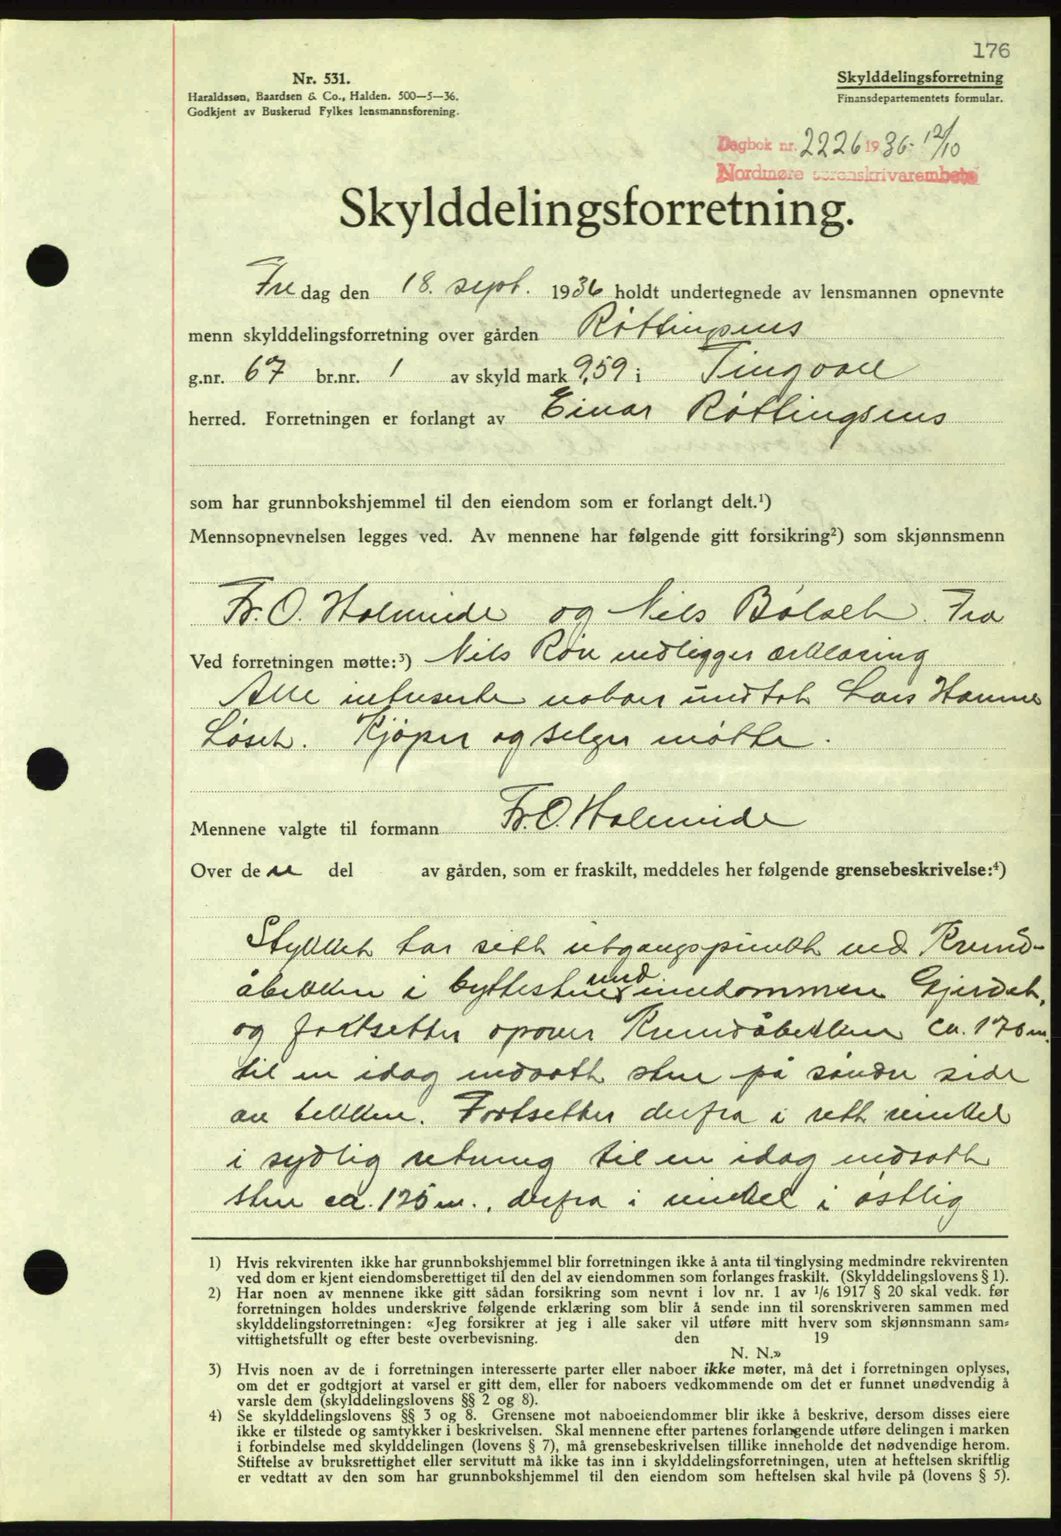 176
Nr. 531.
Haraldssen, Baardsen & Co., Halden. 500—5—36.
Godkjent av Buskerud Fylkes lensmannsforening.
Skylddelingsforretning
Finansdepartementets formular.
Dagbok nr. 2226 1936- 12/10
Nordmøre sorenskrivarembete
Skylddelingsforretning.
Fre dag den 18. sept. 1936 holdt undertegnede av lensmannen opnevnte
menn skylddelingsforretning over gården Røttingsnes
g.nr. 67 br.nr. 1 av skyld mark 9,59 i Tingvoll
herred. Forretningen er forlangt av Einar Røttingsnes
som har grunnbokshjemmel til den eiendom som er forlangt delt.¹)
Mennsopnevnelsen legges ved. Av mennene har følgende gitt forsikring²) som skjønnsmenn
Fr. O. Holmeide og Nils Bølset. Fra
Ved forretningen møtte:³) Nils Røv vedligger erklæring
Alle naboer undtat Lars Hamne
Løset. Kjøper og selger møtte.
Mennene valgte til formann Fr. O. Holmeide
Over de n del av gården, som er fraskilt, meddeles her følgende grensebeskrivelse:⁴)
Stykket har sitt utgangspunkt ved
i byttesten med eiendommen Gjerdet,
og fortsetter opover ca. 170 m.
til en idag nedsatt sten på søndre side
av bekken. Fortsetter derfra i rett vinkel
i sydlig retning til en idag nedsatt
sten ca. 125 m., derfra i vinkel i østlig
1) Hvis rekvirenten ikke har grunnbokshjemmel blir forretningen ikke å anta til tinglysing medmindre rekvirenten
ved dom er kjent eiendomsberettiget til den del av eiendommen som forlanges fraskilt. (Skylddelingslovens § 1).
2) Har noen av mennene ikke gitt sådan forsikring som nevnt i lov nr. 1 av 1/6 1917 § 20 skal vedk. før
forretningen holdes underskrive følgende erklæring som blir å sende inn til sorenskriveren sammen med
skylddelingsforretningen: «Jeg forsikrer at jeg i alle saker vil utføre mitt hverv som skjønnsmann sam-
vittighetsfullt og efter beste overbevisning. den 19
N. N.»
3) Hvis noen av de i forretningen interesserte parter eller naboer ikke møter, må det i forretningen oplyses,
om det er godtgjort at varsel er gitt dem, eller for naboers vedkommende om det er funnet unødvendig å
varsle dem (skylddelingslovens §§ 2 og 8).
4) Se skylddelingslovens §§ 3 og 8. Grensene mot naboeiendommer blir ikke å beskrive, dersom disses eiere
ikke er tilstede og samtykker i beskrivelsen. Skal mennene efter partenes forlangende utføre delingen i marken
i forbindelse med skylddelingen (lovens § 7), må grensebeskrivelsen tillike inneholde det nødvendige herom.
Stiftelse av bruksrettighet eller servitutt må ikke tas inn i skylddelingsforretningen, uten at heftelsen skriftlig
er vedtatt av den som har grunnbokshjemmel til den eiendom som heftelsen skal hvile på (lovens § 5).